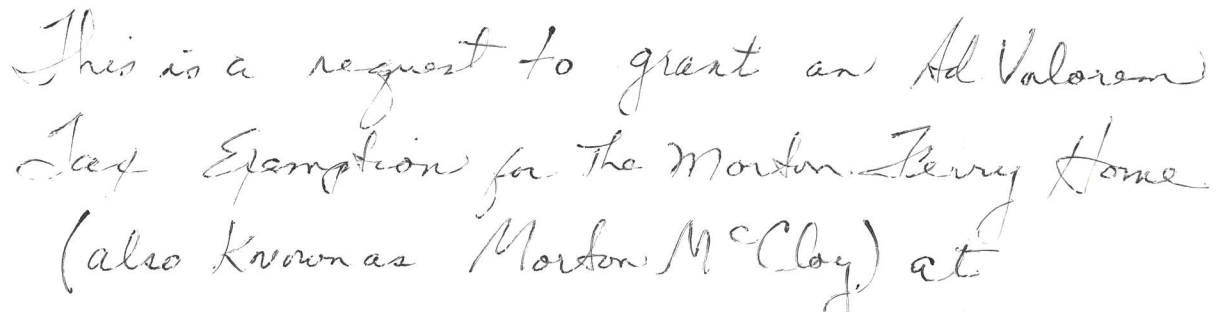 This is a request to grant an Ad Valorem
Tax Examption for The Morton Ferry Home
(also Known as Morton McCloy) at